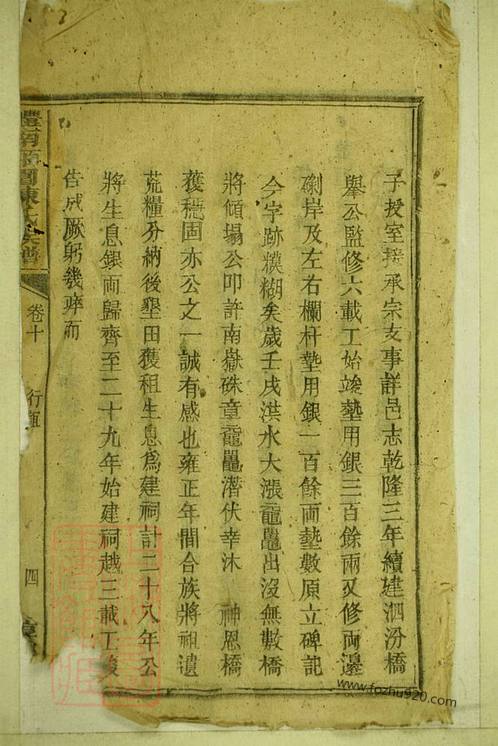 子授室接承宗支事詳邑志乾隆三年續建泗汾橋
舉公監修六載工始竣墊用銀三百餘兩又修両邉
硎岸及左右欄杆墊用銀一百餘両墊數原立碑記
今字跡糢糊矣歲壬戌洪水大漲黿鼉出沒無數橋
將傾塌公叩許南嶽硃章黿鼉潛伏幸沐 神恩橋
獲穩固亦公之一誠有感也雍正年間合族將祖遺
荒糧分納後墾田獲租生息爲建祠計二十八年公
將生息銀両歸齊至二十九年始建祠越三載工竣
告成厥躬幾瘁而
卷十
行
四
www.fozhu920.com